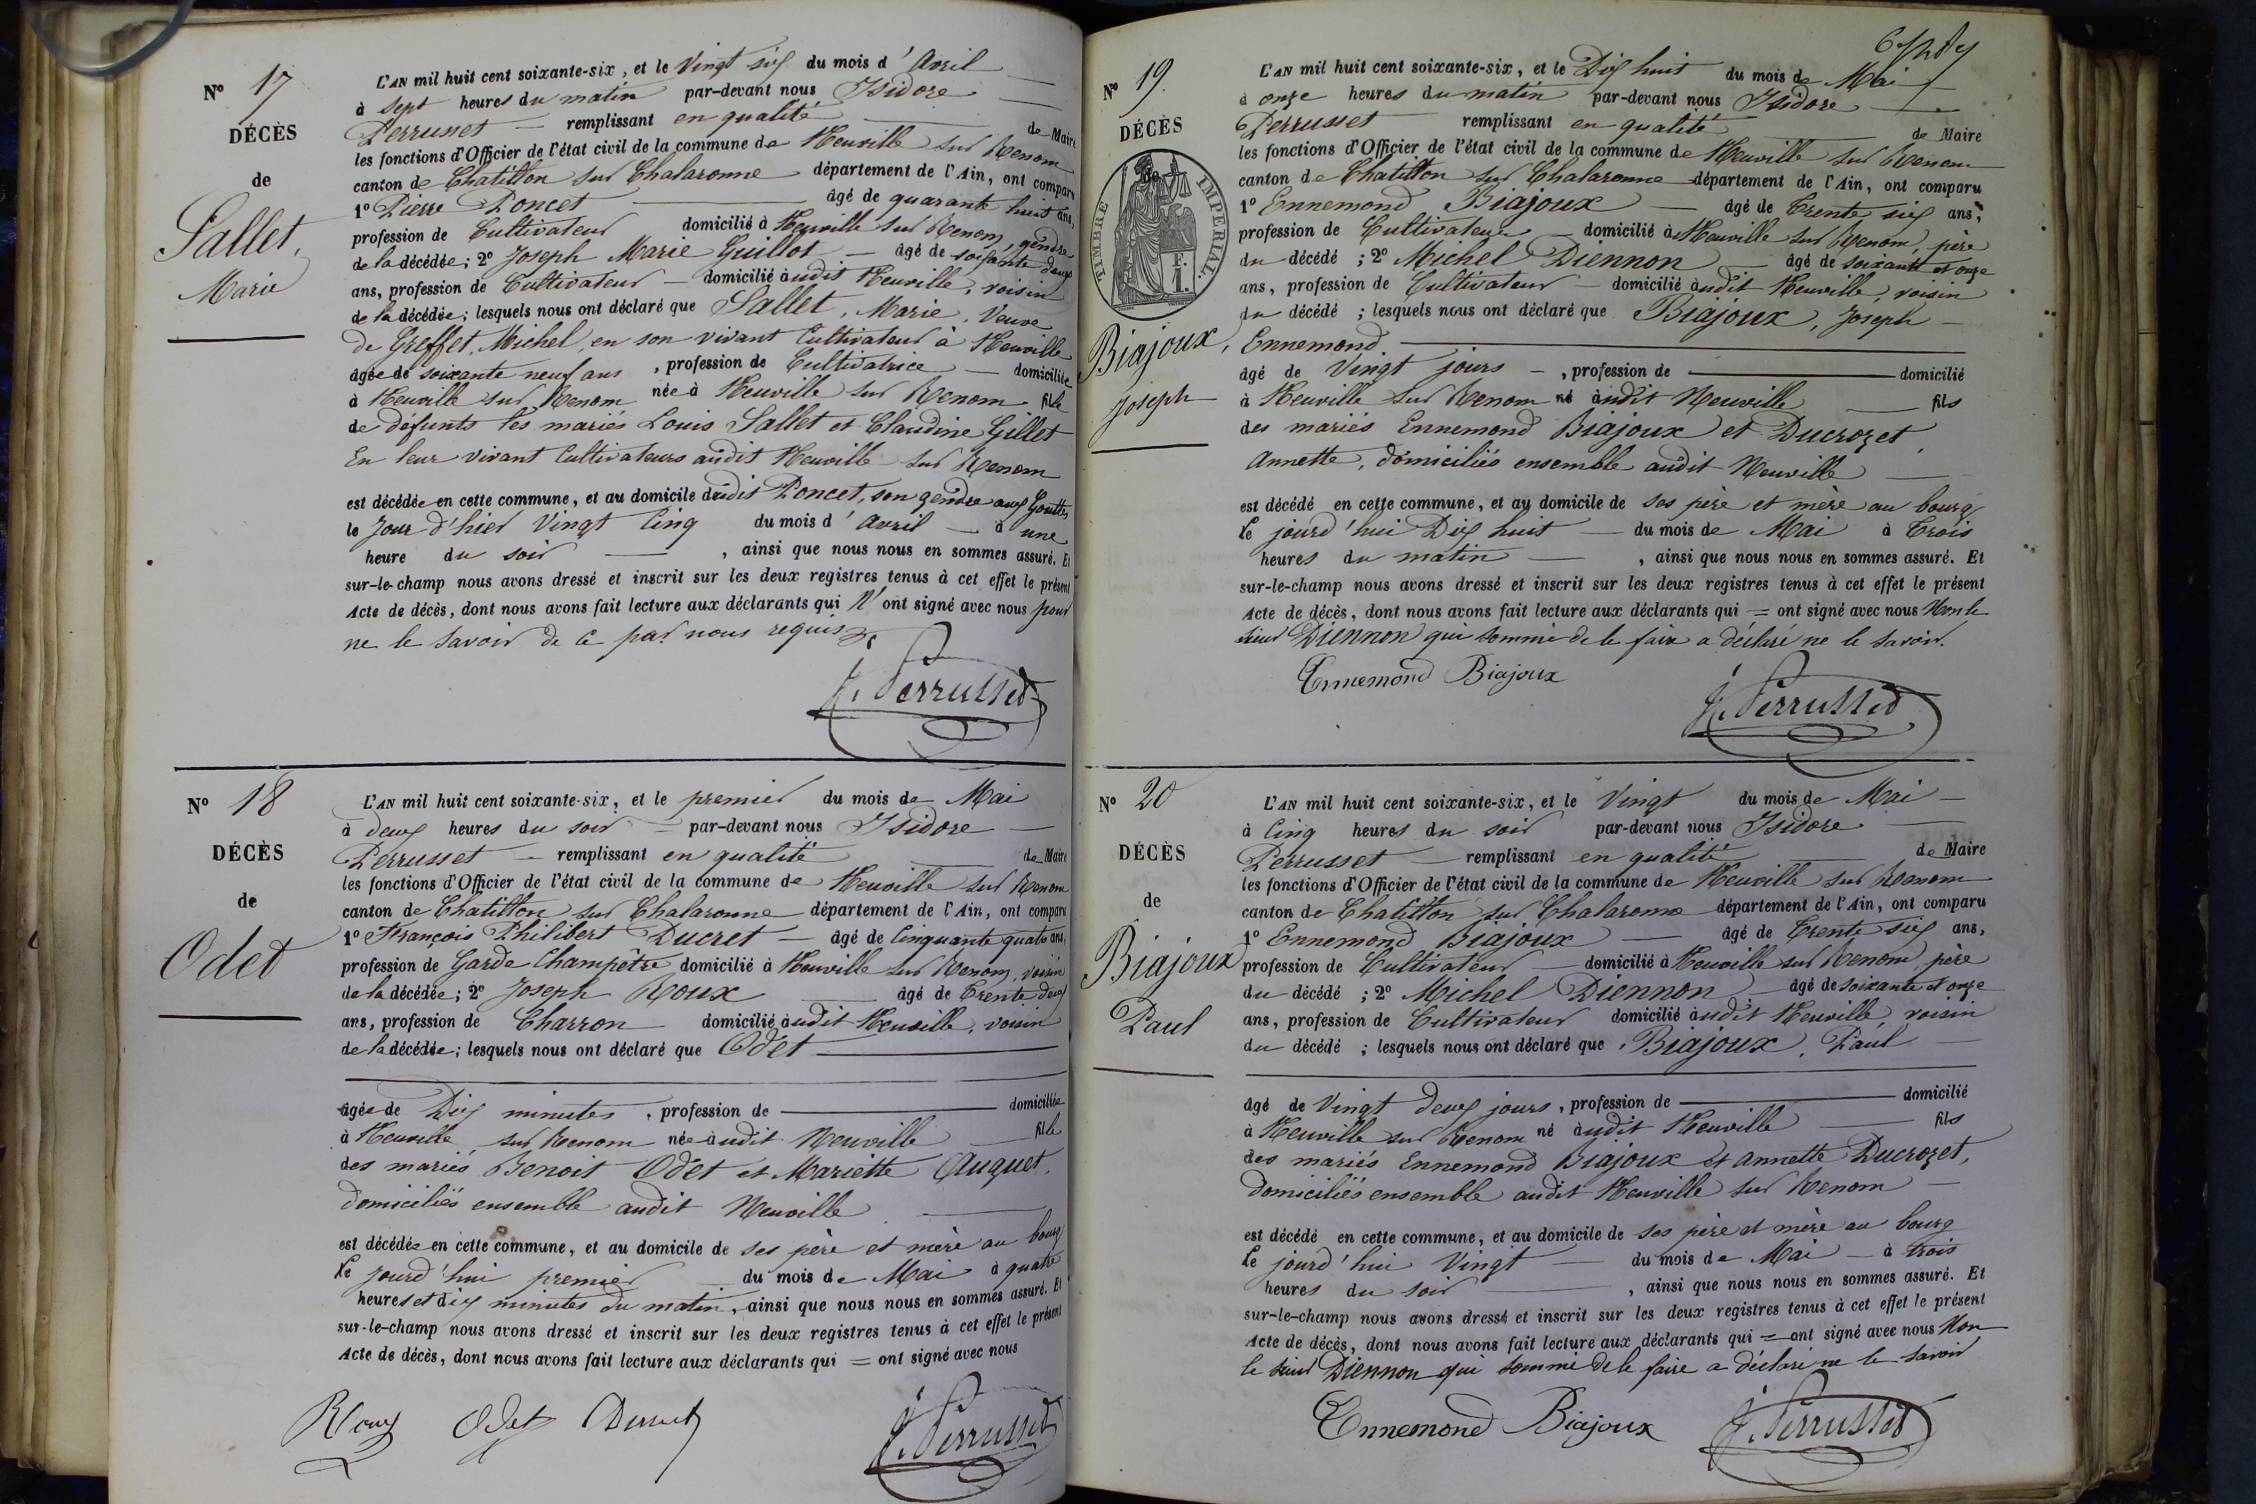 Nº 17
DÉCÈS
de
Sallet,
Marie
L'AN mil huit cent soixante-six, et le Vingt six du mois d'Avril
à sept heures du matin par-devant nous Isidore
Perrusset remplissant en qualité de Maire
les fonctions d'Officier de l'état civil de la commune de Neuville sur Renom
canton de Chatillon sur Chalaronne département de l'Ain, ont comparu
1º Pierre Poncet âgé de quarante huit ans,
profession de Cultivateur domicilié à Neuville sur Renom, gendre
de la décédée; 2º Joseph Marie Guillot âgé de soixante deux
ans, profession de Cultivateur domicilié audit Neuville, voisin
de la décédée; lesquels nous ont déclaré que Sallet, Marie, Veuve
de Greffet, Michel, en son vivant Cultivateur à Neuville
âgée de soixante neuf ans, profession de Cultivatrice domiciliée
à Neuville sur Renom née à Neuville sur Renom fille
de défunts les mariés Louis Sallet et Claudine Gillet
En leur vivant Cultivateurs audit Neuville sur Renom
est décédée en cette commune, et au domicile dudit Poncet, son gendre aux Gouttes
le Jour d'hier Vingt Cinq du mois d'Avril à une
heure du soir, ainsi que nous nous en sommes assuré. Et
sur-le-champ nous avons dressé et inscrit sur les deux registres tenus à cet effet le présent
Acte de décès, dont nous avons fait lecture aux déclarants qui N'ont signé avec nous pour
ne le savoir de ce par nous requis
J. Perrusset
Nº 18
DÉCÈS
de
Odet
L'AN mil huit cent soixante-six, et le premier du mois de Mai
à deux heures du soir par-devant nous Isidore
Perrusset remplissant en qualité de Maire
les fonctions d'Officier de l'état civil de la commune de Neuville sur Renom
canton de Chatillon sur Chalaronne département de l'Ain, ont comparu
1º François Philibert Ducret âgé de Cinquante quatre ans,
profession de Garde Champêtre domicilié à Neuville sur Renom, voisin
de la décédée; 2º Joseph Roux âgé de Trente deux
ans, profession de Charron domicilié audit Neuville, voisin
de la décédée; lesquels nous ont déclaré que Odet
âgée de Dix minutes, profession de domiciliée
à Neuville sur Renom née audit Neuville fille
des mariés Benoit Odet et Mariette Auguet,
domiciliés ensemble audit Neuville
est décédée en cette commune, et au domicile de ses père et mère au bourg
Le Jourd'hui premier du mois de Mai à quatre
heures et dix minutes du matin, ainsi que nous nous en sommes assuré. Et
sur-le-champ nous avons dressé et inscrit sur les deux registres tenus à cet effet le présent
Acte de décès, dont nous avons fait lecture aux déclarants qui = ont signé avec nous
Roux Odet Ducret J. Perrusset
Nº 19.
DÉCÈS
de
TIMBRE IMPÉRIAL.
F.
1.
Biajoux,
Joseph
L'AN mil huit cent soixante-six, et le Dix huit du mois de Mai
à onze heures du matin par-devant nous Isidore
Perrusset remplissant en qualité de Maire
les fonctions d'Officier de l'état civil de la commune de Neuville sur Renom
canton de Chatillon sur Chalaronne département de l'Ain, ont comparu
1º Ennemond Biajoux âgé de Trente six ans,
profession de Cultivateur domicilié à Neuville sur Renom, père
du décédé; 2º Michel Diennon âgé de soixante et onze
ans, profession de Cultivateur domicilié audit Neuville, voisin
du décédé; lesquels nous ont déclaré que Biajoux, Joseph
Ennemond
âgé de Vingt jours, profession de domicilié
à Neuville sur Renom né audit Neuville fils
des mariés Ennemond Biajoux et Ducrozet,
Annette, domiciliés ensemble audit Neuville
est décédé en cette commune, et au domicile de ses père et mère au bourg
Le jourd'hui Dix huit du mois de Mai à Trois
heures du matin, ainsi que nous nous en sommes assuré. Et
sur-le-champ nous avons dressé et inscrit sur les deux registres tenus à cet effet le présent
Acte de décès, dont nous avons fait lecture aux déclarants qui = ont signé avec nous Non le
sieur Diennon qui sommé de le faire a déclaré ne le savoir.
Ennemond Biajoux J. Perrusset
Nº 20
DÉCÈS
de
Biajoux
Paul
L'AN mil huit cent soixante-six, et le Vingt du mois de Mai
à Cinq heures du soir par-devant nous Isidore
Perrusset remplissant en qualité de Maire
les fonctions d'Officier de l'état civil de la commune de Neuville sur Renom
canton de Chatillon sur Chalaronne département de l'Ain, ont comparu
1º Ennemond Biajoux âgé de Trente six ans,
profession de Cultivateur domicilié à Neuville sur Renom, père
du décédé; 2º Michel Diennon âgé de soixante et onze
ans, profession de Cultivateur domicilié audit Neuville, voisin
du décédé; lesquels nous ont déclaré que Biajoux, Paul
âgé de Vingt deux jours, profession de domicilié
à Neuville sur Renom né audit Neuville fils
des mariés Ennemond Biajoux et Annette Ducrozet,
domiciliés ensemble audit Neuville sur Renom
est décédé en cette commune, et au domicile de ses père et mère au bourg
Le jourd'hui Vingt du mois de Mai à trois
heures du soir, ainsi que nous nous en sommes assuré. Et
sur-le-champ nous avons dressé et inscrit sur les deux registres tenus à cet effet le présent
Acte de décès, dont nous avons fait lecture aux déclarants qui = ont signé avec nous Non
le sieur Diennon qui sommé de le faire a déclaré ne le savoir
Ennemond Biajoux J. Perrusset